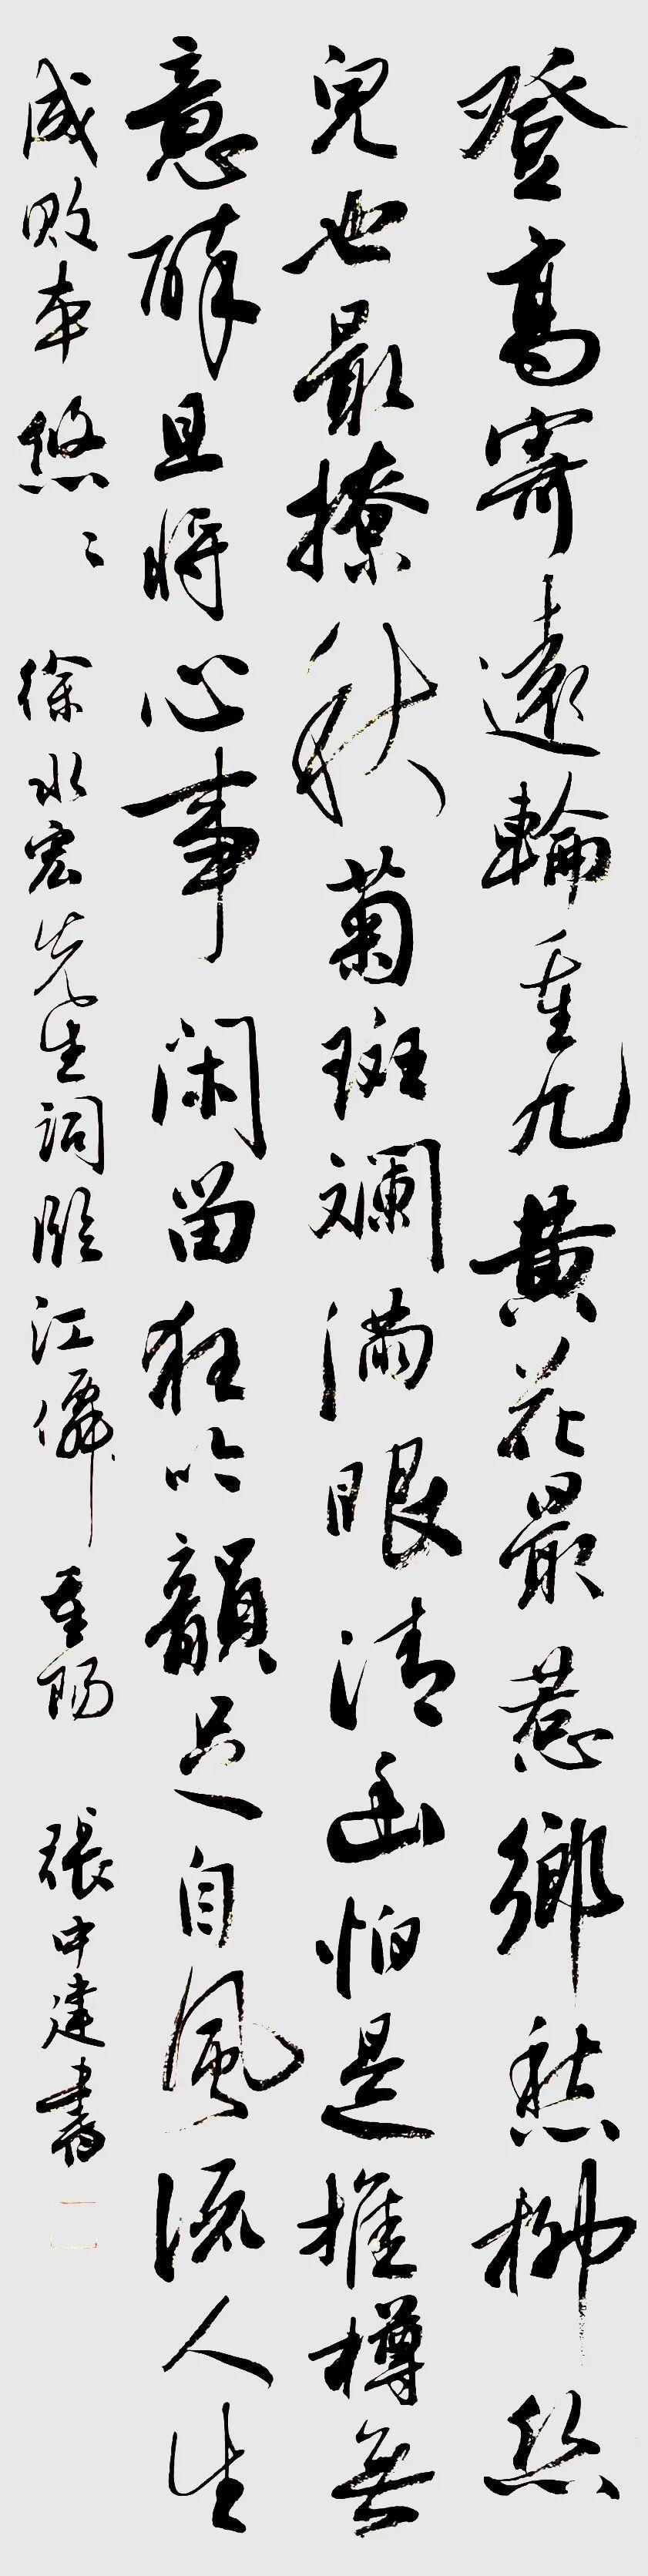 登高寄遠輪重九黄花最惹鄉愁柳絲
兒也最撩秋菊斑斕滿眼清幽怕是推樽無
意醉且將心事閑留狂吟韻足自風流人生
成敗本悠〻 徐水宏先生詞臨江僊 重陽 張中建書